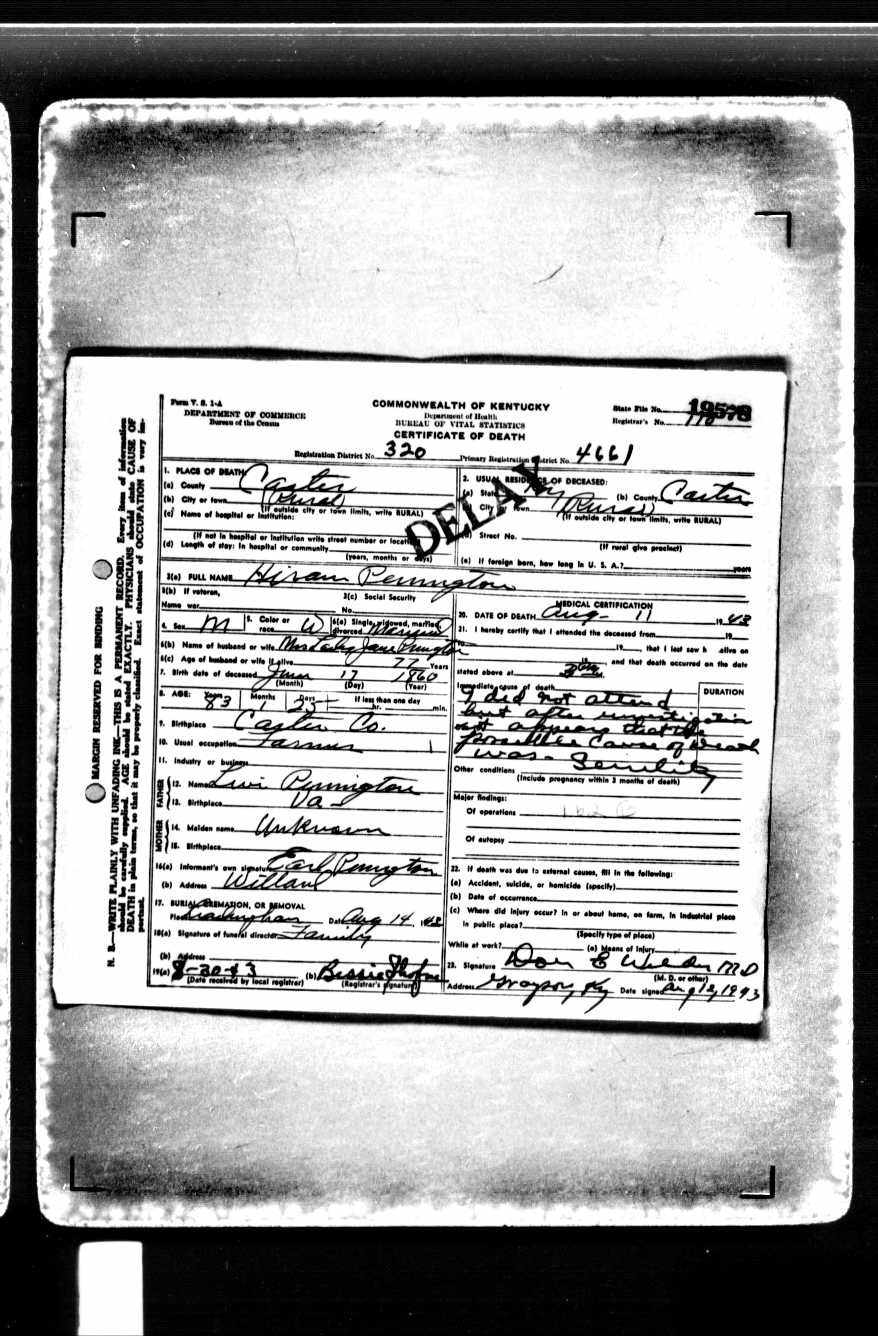 Form V. S. 1-A
DEPARTMENT OF COMMERCE
Bureau of the Census
COMMONWEALTH OF KENTUCKY
Department of Health
BUREAU OF VITAL STATISTICS
CERTIFICATE OF DEATH
State File No. 19578
Registrar's No.
Registration District No. 320 Primary Registration District No. 4661
DELAY
1. PLACE OF DEATH:
(a) County Carter
(b) City or town Rural
(If outside city or town limits, write RURAL)
(c) Name of hospital or institution:
(If not in hospital or institution write street number or location)
(d) Length of stay: In hospital or community
(years, months or days)
2. USUAL RESIDENCE OF DECEASED:
(a) State Ky (b) County Carter
(c) City or town Rural
(If outside city or town limits, write RURAL)
(d) Street No.
(If rural give precinct)
(e) If foreign born, how long in U. S. A.? years
3(a) FULL NAME Hiram Pennington
3(b) If veteran, 3(c) Social Security
Name war No.
4. Sex M 5. Color or race W 6(a) Single, widowed, married, divorced Married
6(b) Name of husband or wife Mrs Jane Pennington
6(c) Age of husband or wife if alive 77 Years
7. Birth date of deceased 17 1860
(Month) (Day) (Year)
8. AGE: Years Months Days If less than one day
83 1 25 hr. min.
9. Birthplace Carter Co.
10. Usual occupation Farmer
11. Industry or business
FATHER
12. Name Levi Pennington
13. Birthplace Va
MOTHER
14. Maiden name Unknown
15. Birthplace
16(a) Informant's own signature Earl Pennington
(b) Address Willard
17. BURIAL, CREMATION, OR REMOVAL
Place Date Aug 14, 1943
18(a) Signature of funeral director Family
(b) Address
19(a) 8-30-43 (b) Bessie
(Date received by local registrar) (Registrar's signature)
MEDICAL CERTIFICATION
20. DATE OF DEATH Aug- 11 1943
21. I hereby certify that I attended the deceased from 19
19, that I last saw h alive on
19, and that death occurred on the date
stated above at m.
Immediate cause of death DURATION
I did not attend
but after investigation
it appears that the
possible cause of death
was- Senility
Other conditions
(Include pregnancy within 3 months of death)
Major findings:
Of operations
Of autopsy
22. If death was due to external causes, fill in the following:
(a) Accident, suicide, or homicide (specify)
(b) Date of occurrence
(c) Where did injury occur? In or about home, on farm, in industrial place
in public place?
(Specify type of place)
While at work? (e) Means of injury
23. Signature Don E Wilder MD
(M. D. or other)
Address Grayson, Ky Date signed Aug 12, 1943
MARGIN RESERVED FOR BINDING
N. B.—WRITE PLAINLY WITH UNFADING INK—THIS IS A PERMANENT RECORD. Every item of information
should be carefully supplied. AGE should be stated EXACTLY. PHYSICIANS should state CAUSE OF
DEATH in plain terms, so that it may be properly classified. Exact statement of OCCUPATION is very im-
portant.